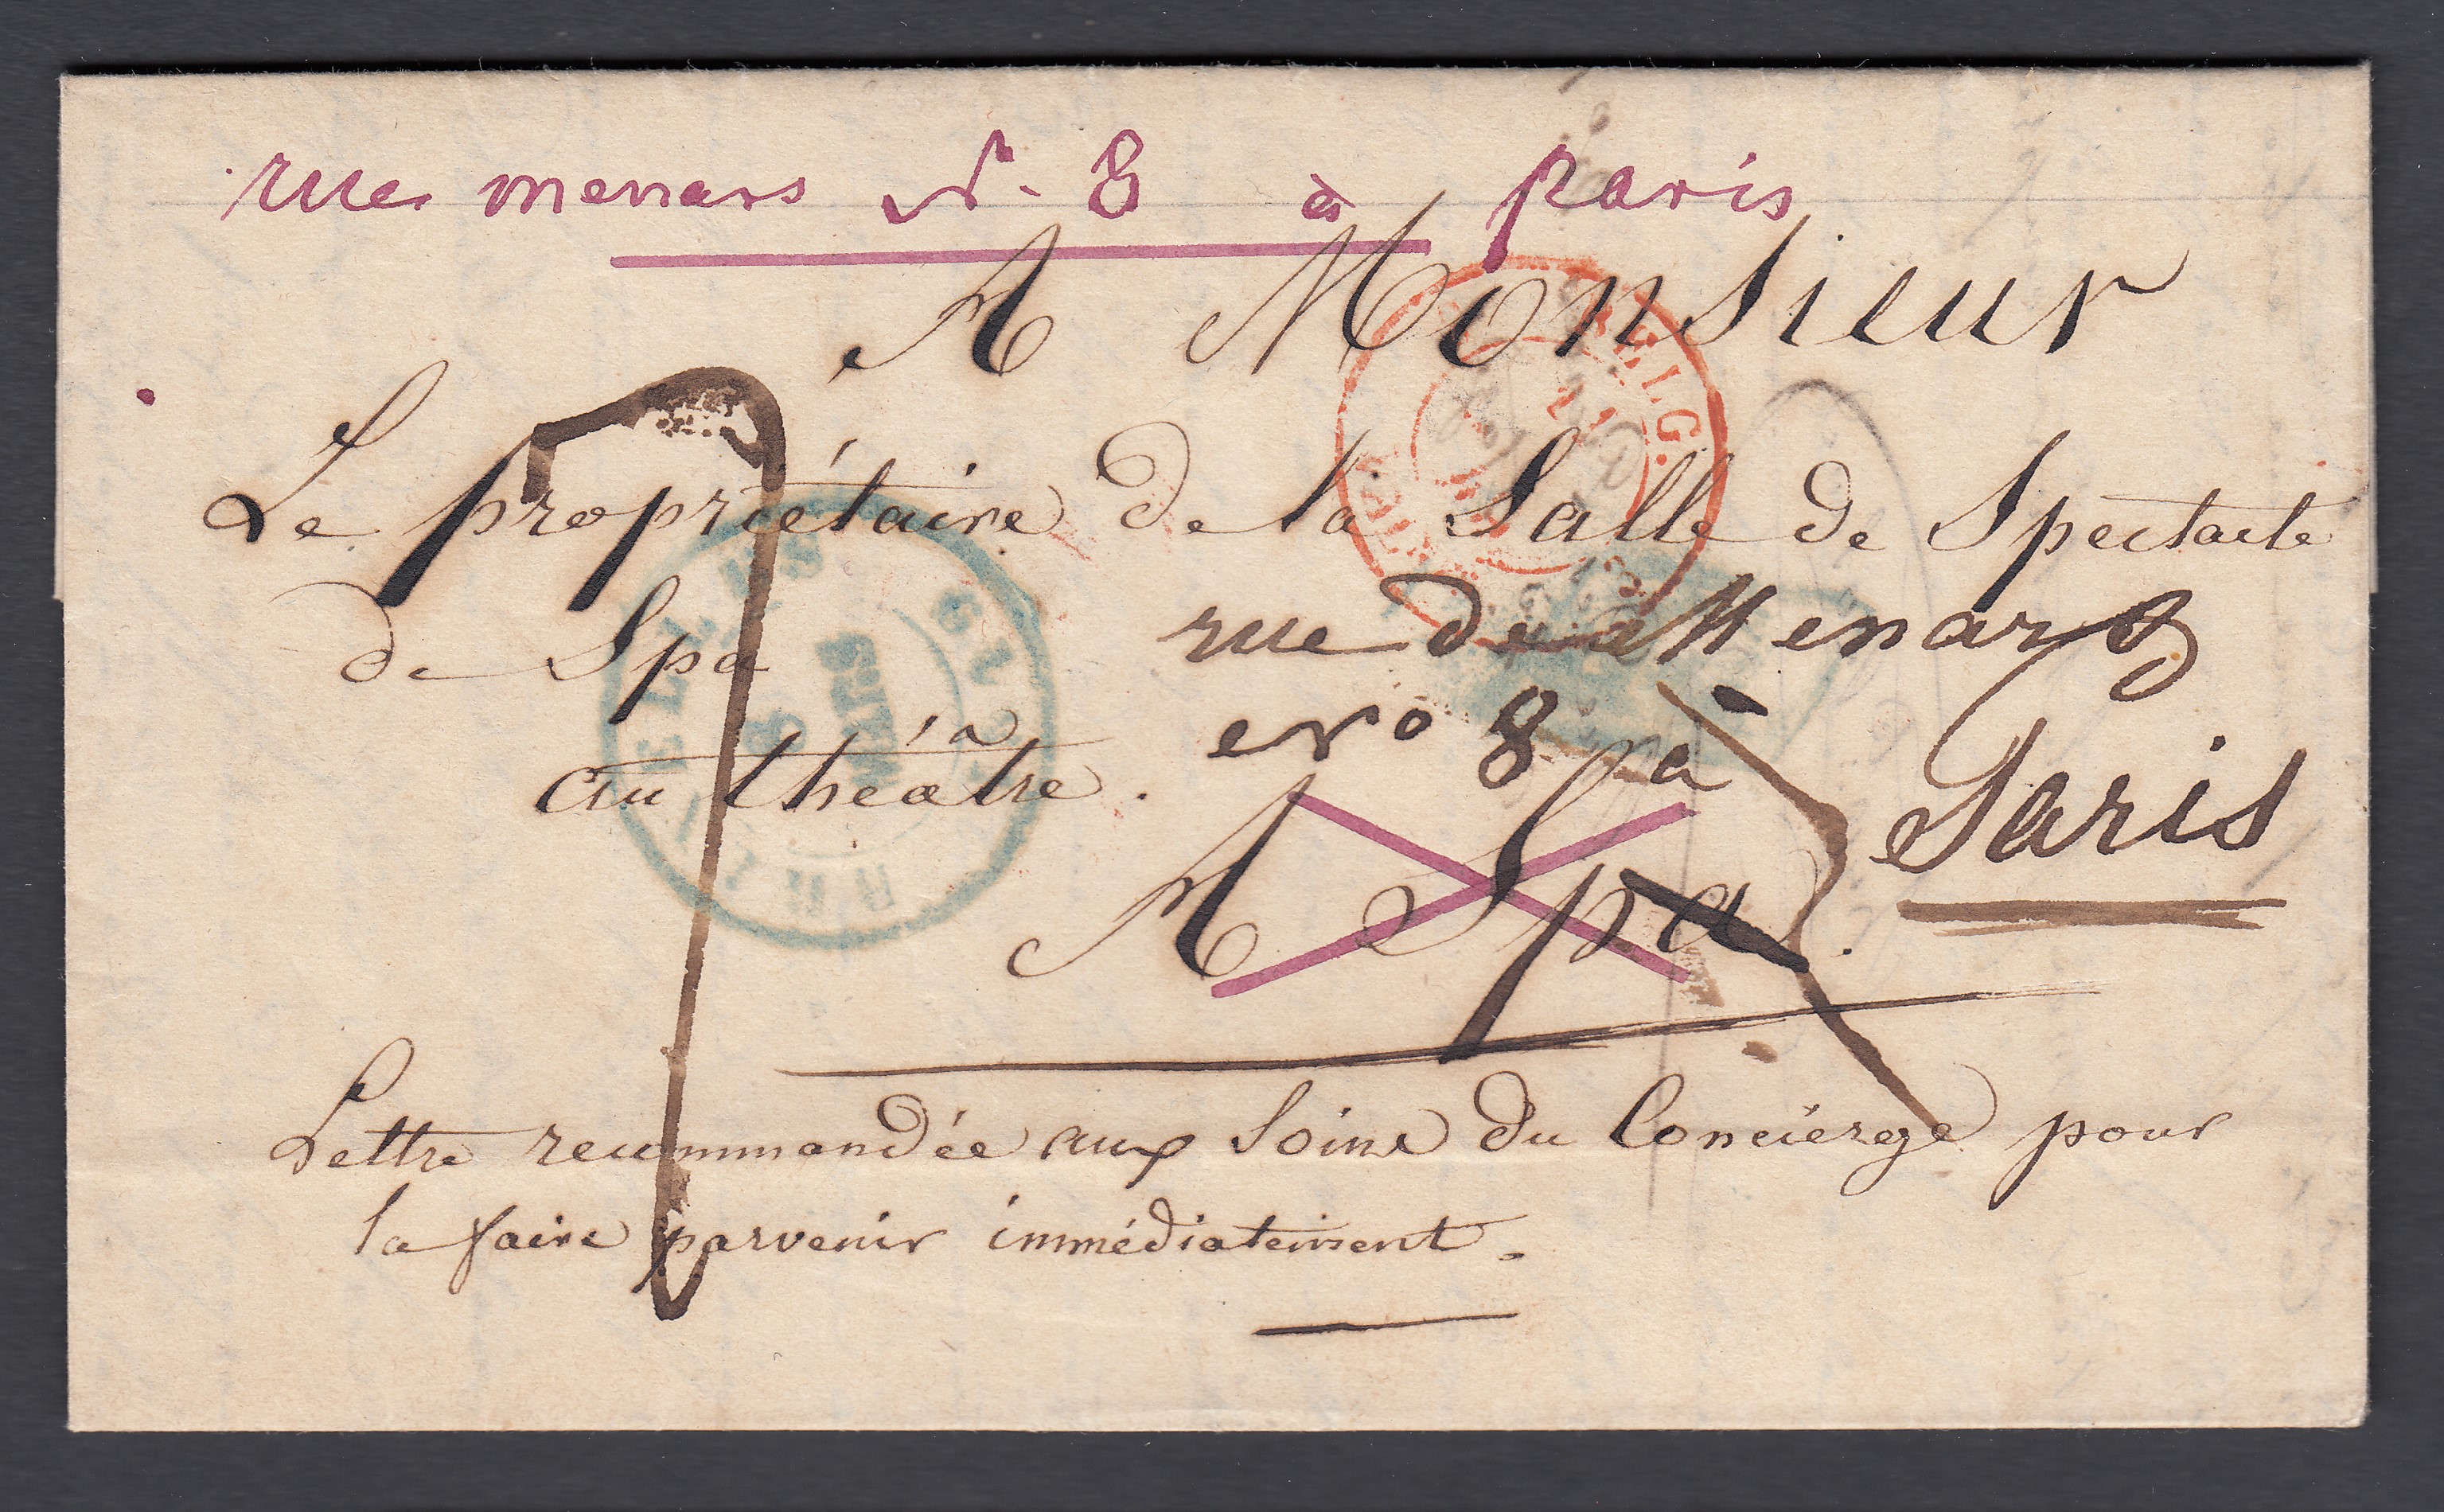 rue menars N. 8 à Paris
A Monsieur
Le propriétaire de la Salle de Spectacle
de Spa
rue de Menars
au théâtre.
nro 8 à
Paris
A Spa.
Lettre recommandée aux Soins du Concierge pour
la faire parvenir immédiatement.
BELG.
BRUXELLES
8
MARS